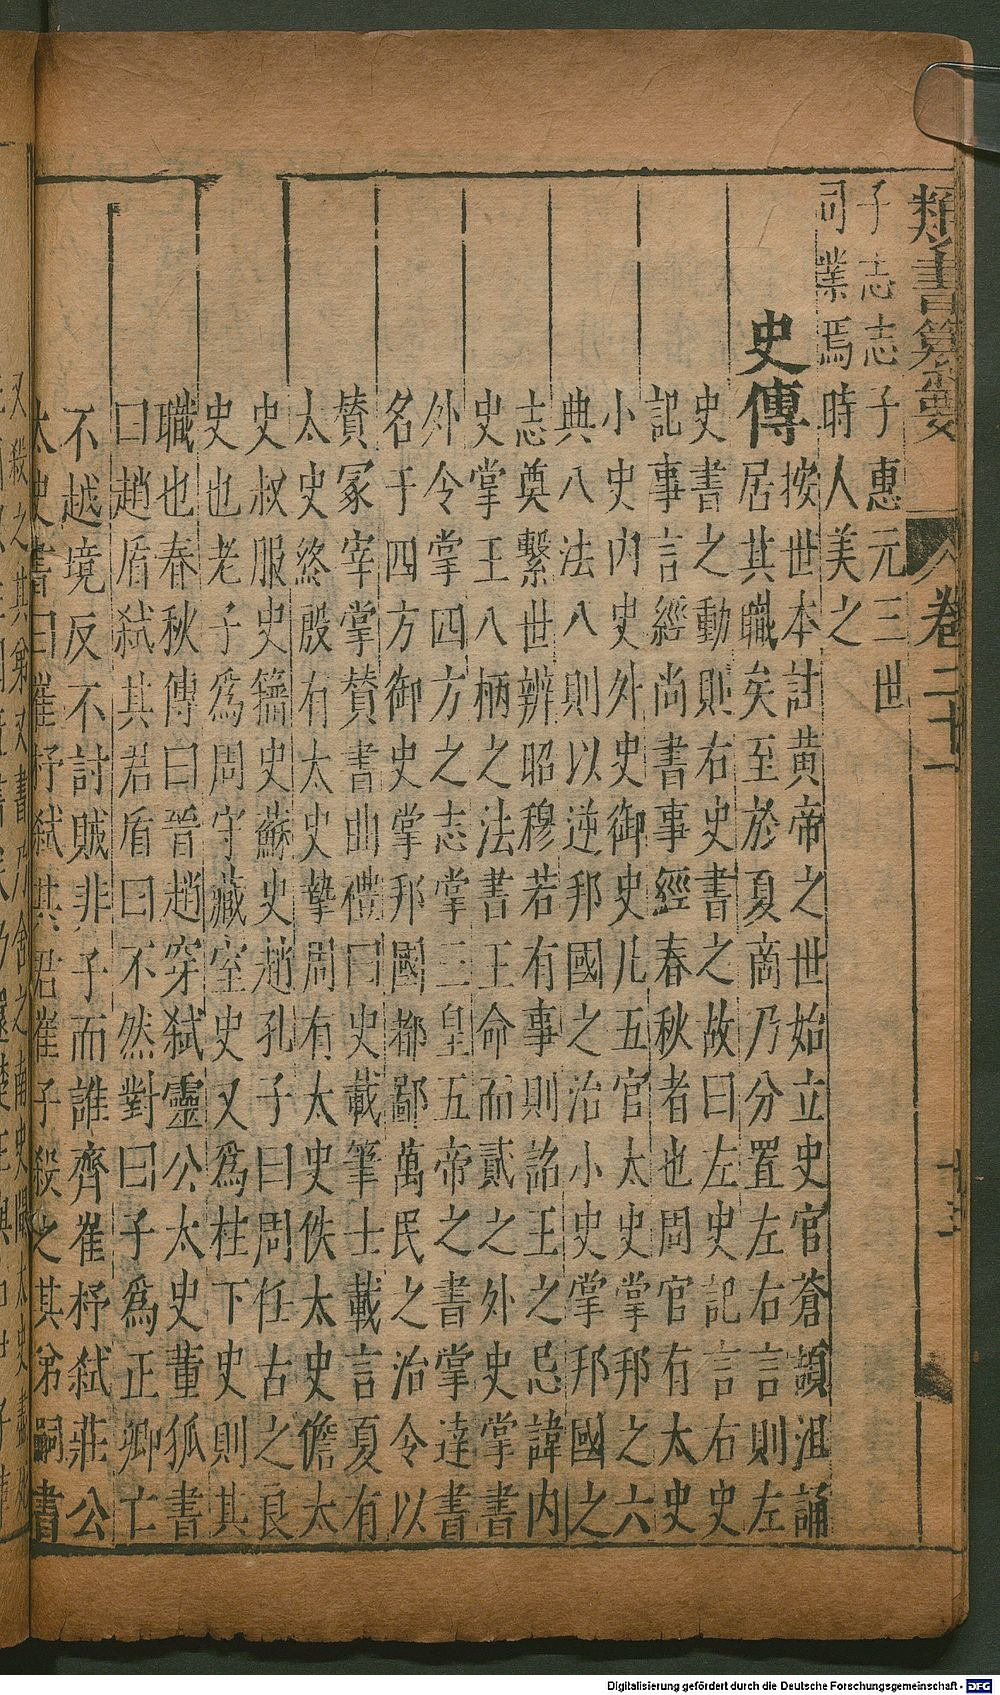 類書纂要 卷二十一
子志志子惠元三世
司業焉時人美之
史傳
按世本註黃帝之世始立史官蒼頡沮誦
居其職矣至於夏商乃分置左右言則左
史書之動則右史書之故曰左史記言右史
記事言經尚書事經春秋者也周官有太史
小史內史外史御史凡五官太史掌邦之六
典八法八則以逆邦國之治小史掌邦國之
志奠繫世辨昭穆若有事則詔王之忌諱內
史掌王八柄之法書王命而貳之外史掌書
外令掌四方之志掌三皇五帝之書掌達書
名于四方御史掌邦國都鄙萬民之治令以
贊冢宰掌贊書曲禮曰史載筆士載言夏有
太史終殷有太史摯周有太史佚太史儋太
史叔服史籀史蘇史趙孔子曰周任古之良
史也老子為周守藏室史又為柱下史則其
職也春秋傳曰晉趙穿弒靈公太史董狐書
曰趙盾弒其君盾曰不然對曰子為正卿亡
不越境反不討賊非子而誰齊崔杼弒莊公
太史書曰崔杼弒其君崔子殺之其弟嗣書
又殺之其弟又書乃舍之南史聞太史盡死
Digitalisierung gefördert durch die Deutsche Forschungsgemeinschaft - DFG